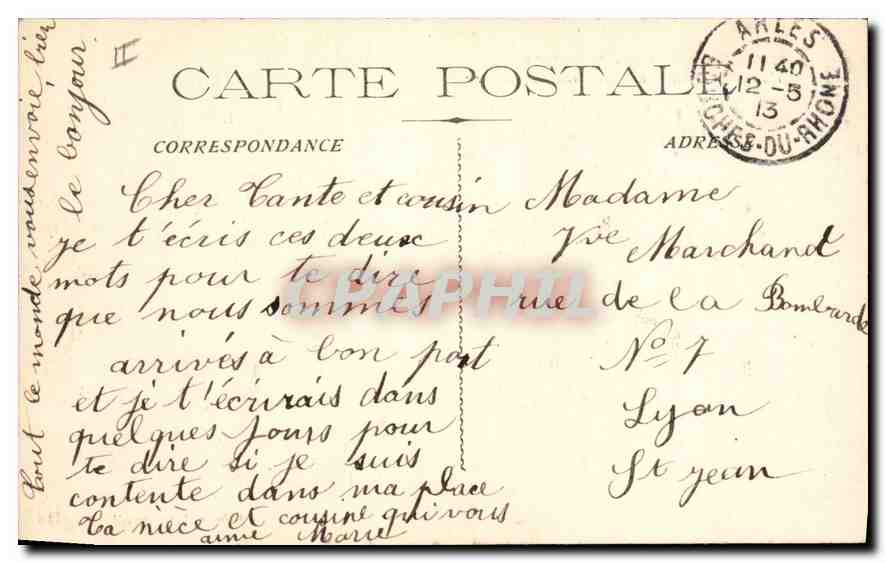 CARTE POSTALE
ARLES
11 40
12 -5
13
BOUCHES-DU-RHONE
CORRESPONDANCE
Cher Tante et cousin
je t'écris ces deux
mots pour te dire
que nous sommes
arrivés à bon port
et je t'écrirais dans
quelques jours pour
te dire si je suis
contente dans ma place
Ta nièce et cousine qui vous
aime Marie
Tout le monde vous envoie bien
le bonjour.
ADRESSE
Madame
Vve Marchand
rue de la Bombarde
No 7
Lyon
St jean
CPAPHIL